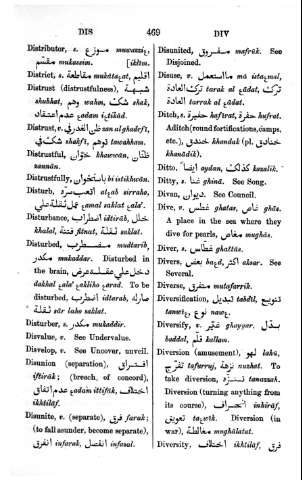 DIS 469 DIV
Distributor, s. موزع muwazziɛ,
مقسّم mukassim. [iklīm.
District, s. مقاطعة mukātaɛat, اقليم
Distrust (distrustfulness), شبهة
shubhat, وهم wahm, شك shak,
عدم اعتقاد
Distrust, v.
شك في shakk fi, توهم tawahham.
Distrustful, خوّان khawwān, ظنان
zannān.
Distrustfully, باستخوان bi istikhwān.
Disturb,
Disturbance, s. اضطراب idtirāb, خلل
khalal, فتنة fitnat,
Disturbed, مضطرب mudtarib,
مكدّر mukaddar. Disturbed in
the brain,
To be
disturbed, اضطراب idtirāb,
Disturber, s. مكدّر mukaddir.
Disvalue, v. See Undervalue.
Disvelop, v. See Uncover, unveil.
Disunion (separation), افتراق
iftirāk; (breach, of concord),
عدم اتفاق اختلاف
ikhtilāf.
Disunite, v. (separate), فرق farak;
(to fall asunder, become separate),
انفرق infarak, انفصل infasal.
Disunited, مفروق mafrūk. See
Disjoined.
Disuse, v.
ترك tarak al ɛādat, ترك العادة
tarrak al ɛādat.
Ditch, s. حفرة haftrat, حفرة hufrat.
A ditch (round fortifications, camps,
etc.), خندق khandak (pl. خنادق
khanādik).
Ditto, ايضاً aydan, كذلك kazalik.
Ditty, s. غنا ghinā. See Song.
Divan, ديوان. See Council.
Dive, v. غطس ghatas, غاص ghās.
A place in the sea where they
dive for pearls, مغاص mughās.
Diver, s. غطّاس ghattās.
Divers, بعض baɛd, اكثر aksar. See
Several.
Diverse, متفرق mutafarrik.
Diversification, تبديل tabdīl, تنويع
tanwīɛ, نوع nawɛ.
Diversify, v. غيّر ghayyar, بدّل
baddal,
Diversion (amusement), لهو lahū,
تفرّج tafarruj, نزهة nuzhat. To
take diversion, تنزّه tanazzah.
Diversion (turning anything from
its course), انحراف inhirāf,
تعويق taɛwīk. Diversion (in
war), مغالطة mughālatat.
Diversity, اختلاف ikhtilāf, فرق